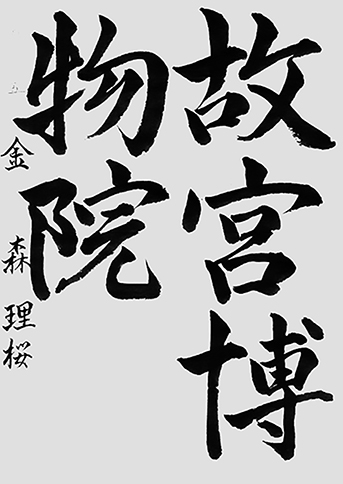 故宮博
物院
金 森理桜